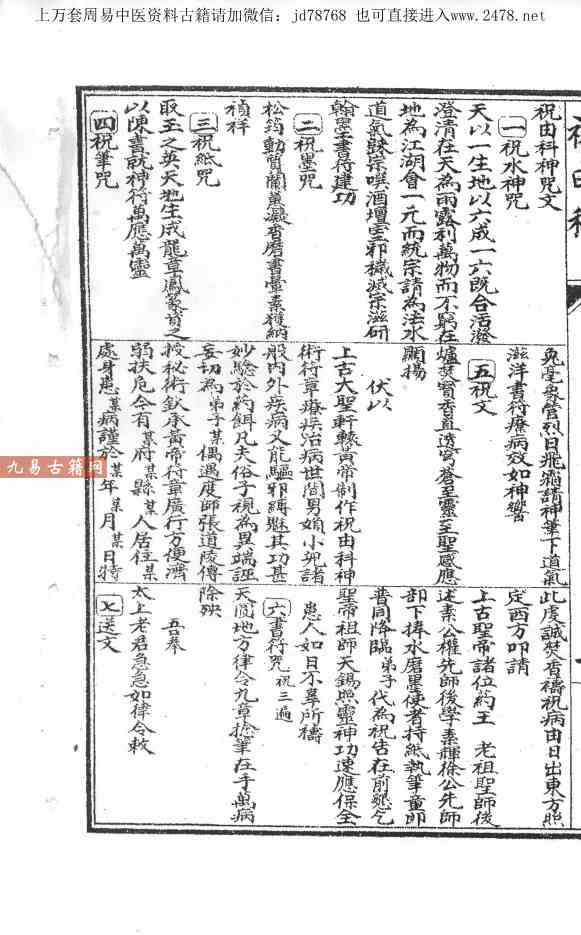 上万套周易中医资料古籍请加微信：jd78768 也可直接进入www.2478.net
祝由科神咒文
一祝水神咒
天以一生地以六成一六既合活潑
澄清在天為雨露利萬物而不窮在
地為江湖會一元而統宗請為法水
道氣疎宗噀酒壇室邪穢滅宗滋研
翰墨書符建功
二祝墨咒
松筠動質蘭薰凝香磨書暈素獲納
禎祥
三祝紙咒
取玉之英天地生成龍章鳳篆育之
以陳書就神符萬應萬靈
四祝筆咒
兔毫象管烈日飛霜請神筆下道氣
滋洋書符療病效如神響
五祝文
爐焚寶香直透穹蒼至靈至聖感應
顯揚
伏以
上古大聖軒轅黃帝制作祝由科神
術符章療疾治病世間男婦小兒諸
般內外疾病又能驅邪縛魅其功甚
妙驗於約餌凡夫俗子視為異端誣
妄切為弟子某偶遇度師張道陵傳
授秘術欽承黃帝符章廣行方便濟
弱扶危今有某府某縣某人居住某
處身患某病謹於某年某月某日特
此虔誠焚香禱祝病由日出東方照
定西方叩請
上古聖帝諸位葯王 老祖聖師後
述素公權先師後學素輝徐公先師
部下捧水磨墨使者持紙執筆童郎
普同降臨弟子代為祝告在前懇乞
聖帝祖師天錫照靈神功速應保全
患人如日不辜所禱
六書符咒 祝三遍
天圓地方律令九章捻筆在手萬病
除殃
吾奉
太上老君急急如律令敕
七送文
九易古籍网